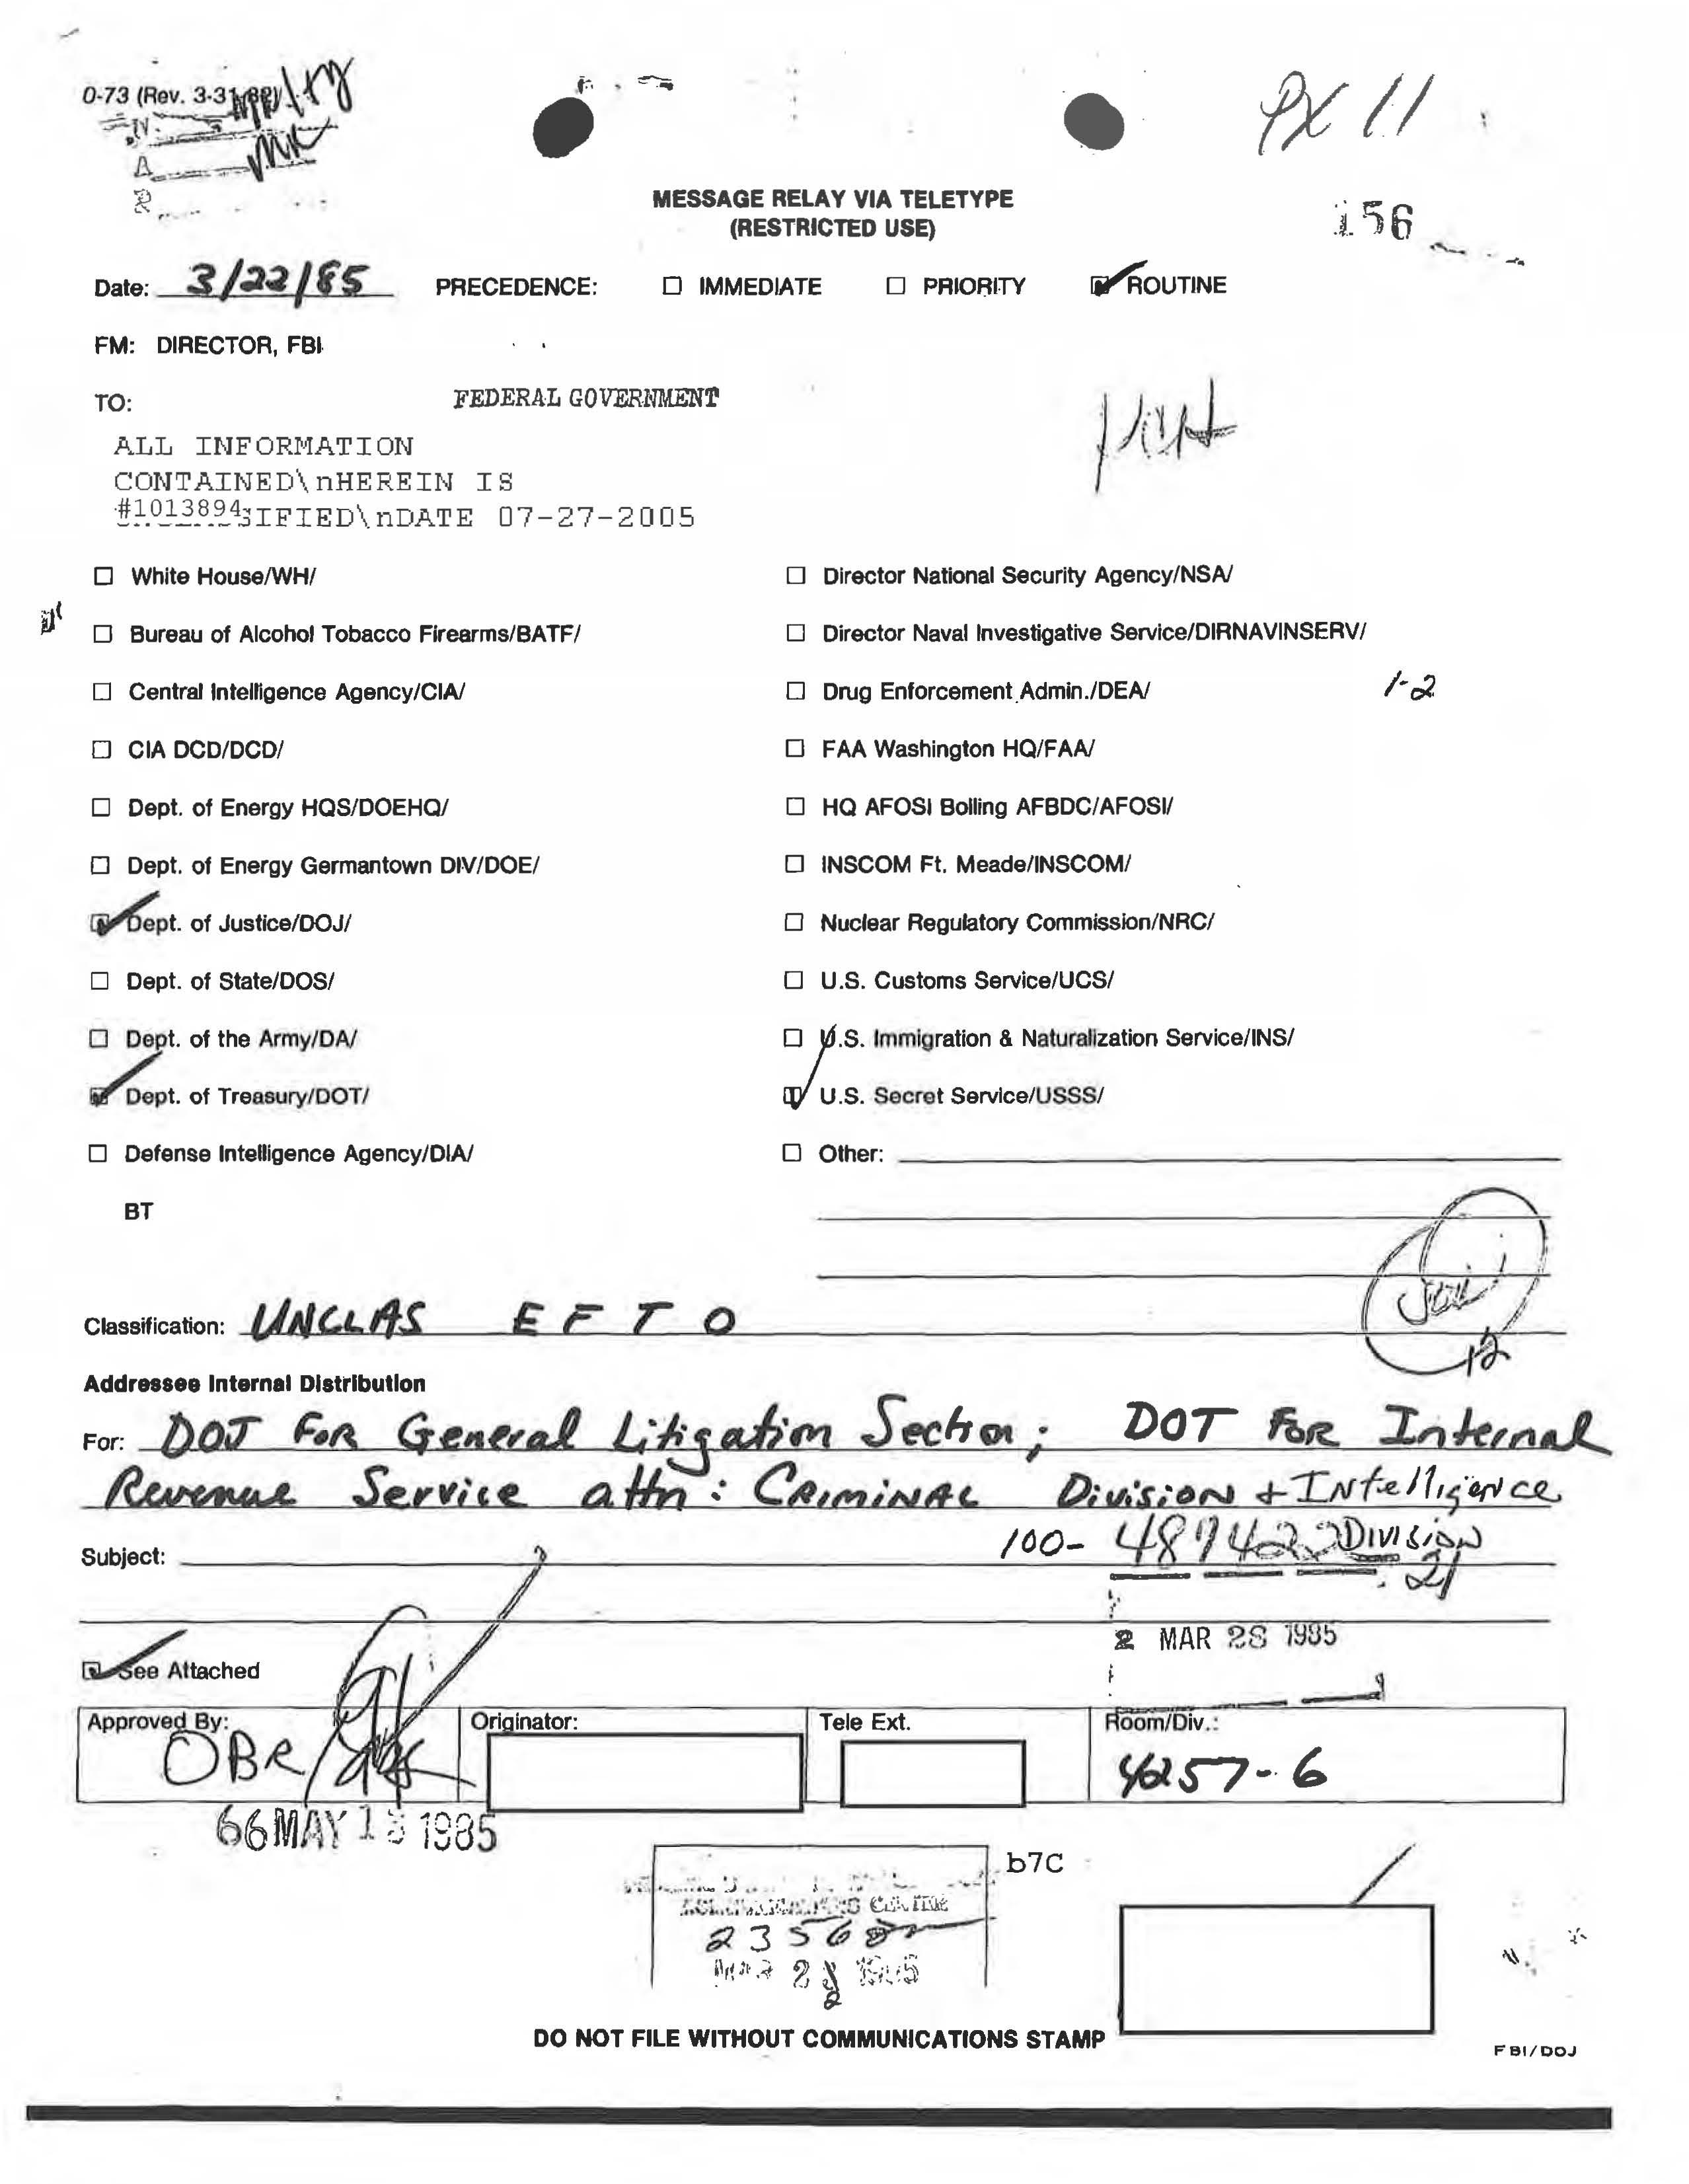 0-73 (Rev. 3-31-
PX 11
MESSAGE RELAY VIA TELETYPE
(RESTRICTED USE)
156
Date: 3/22/85 PRECEDENCE: ☐ IMMEDIATE ☐ PRIORITY ☑ ROUTINE
FM: DIRECTOR, FBI
TO: FEDERAL GOVERNMENT
ALL INFORMATION
CONTAINED\nHEREIN IS
#1013894SIFIED\nDATE 07-27-2005
☐ White House/WH/ ☐ Director National Security Agency/NSA/
☐ Bureau of Alcohol Tobacco Firearms/BATF/ ☐ Director Naval Investigative Service/DIRNAVINSERV/
☐ Central Intelligence Agency/CIA/ ☐ Drug Enforcement Admin./DEA/ 1-2
☐ CIA DCD/DCD/ ☐ FAA Washington HQ/FAA/
☐ Dept. of Energy HQS/DOEHQ/ ☐ HQ AFOSI Bolling AFBDC/AFOSI/
☐ Dept. of Energy Germantown DIV/DOE/ ☐ INSCOM Ft. Meade/INSCOM/
☑ Dept. of Justice/DOJ/ ☐ Nuclear Regulatory Commission/NRC/
☐ Dept. of State/DOS/ ☐ U.S. Customs Service/UCS/
☐ Dept. of the Army/DA/ ☐ U.S. Immigration & Naturalization Service/INS/
☑ Dept. of Treasury/DOT/ ☑ U.S. Secret Service/USSS/
☐ Defense Intelligence Agency/DIA/ ☐ Other:
BT
Classification: UNCLAS E F T O
12
Addressee Internal Distribution
For: DOJ FOR General Litigation Section; DOT FOR Internal
Revenue Service attn: CRIMINAL Division + INtelligence
Subject: 100- 487422 DIVISION
21
2 MAR 28 1985
☑ See Attached
Approved By: Originator: Tele Ext. Room/Div.:
OBR/ 4257-6
66 MAY 13 1985
b7C
2356
DO NOT FILE WITHOUT COMMUNICATIONS STAMP
FBI/DOJ